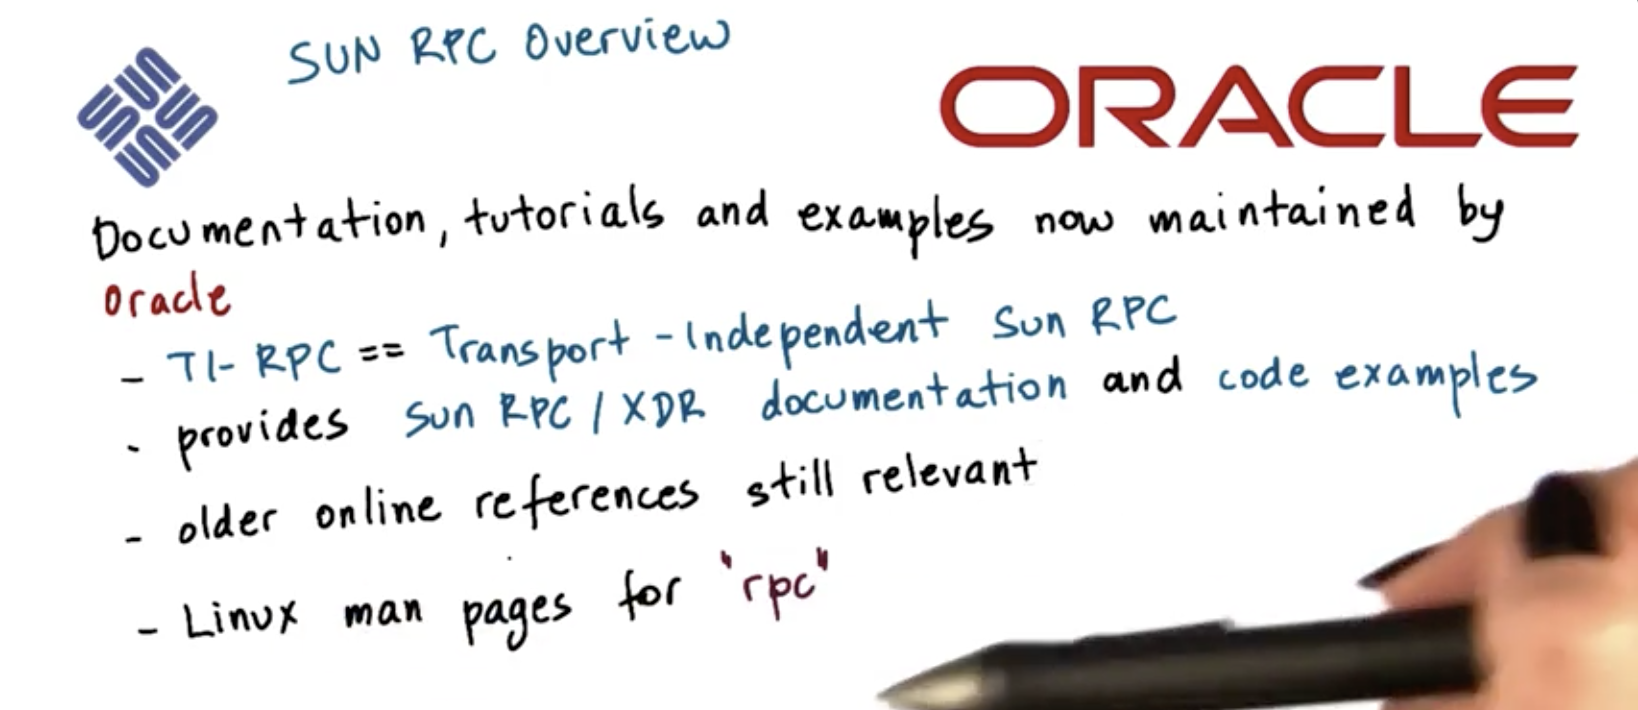 SUN RPC Overview
SUN SUN SUN SUN
ORACLE
Documentation, tutorials and examples now maintained by
Oracle
- TI-RPC == Transport-Independent Sun RPC
- provides Sun RPC / XDR documentation and code examples
- older online references still relevant
- Linux man pages for "rpc"